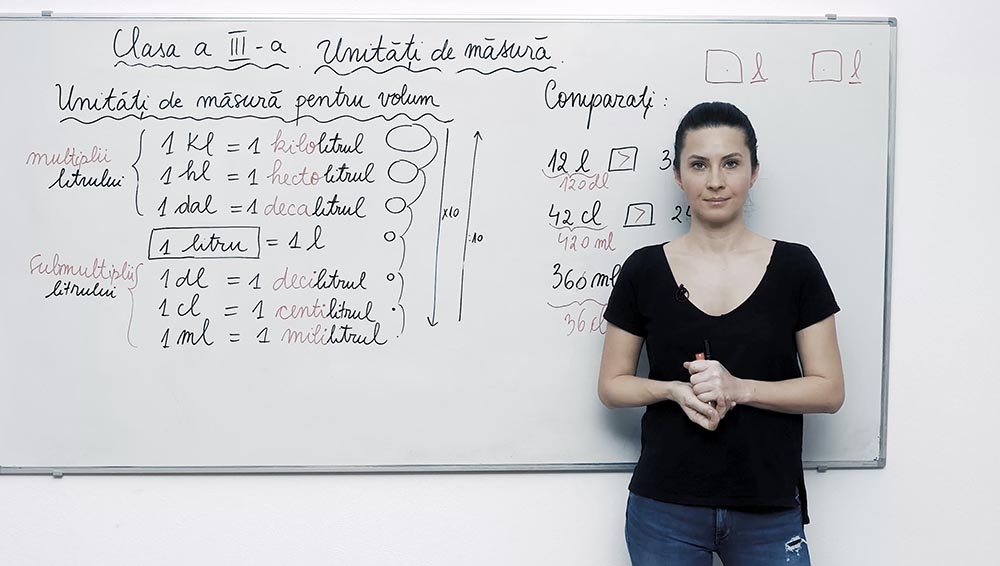 Clasa a III-a. Unități de măsură.
l l
Unități de măsură pentru volum
Comparați:
multiplii
litrului
1 kl = 1 kilolitrul
1 hl = 1 hectolitrul
1 dal = 1 decalitrul
1 litru = 1 l
submultiplii
litrului
1 dl = 1 decilitrul
1 cl = 1 centilitrul
1 ml = 1 mililitrul
x10
:10
12 l > 3
120 dl
42 cl > 2
420 ml
360 ml
36 cl